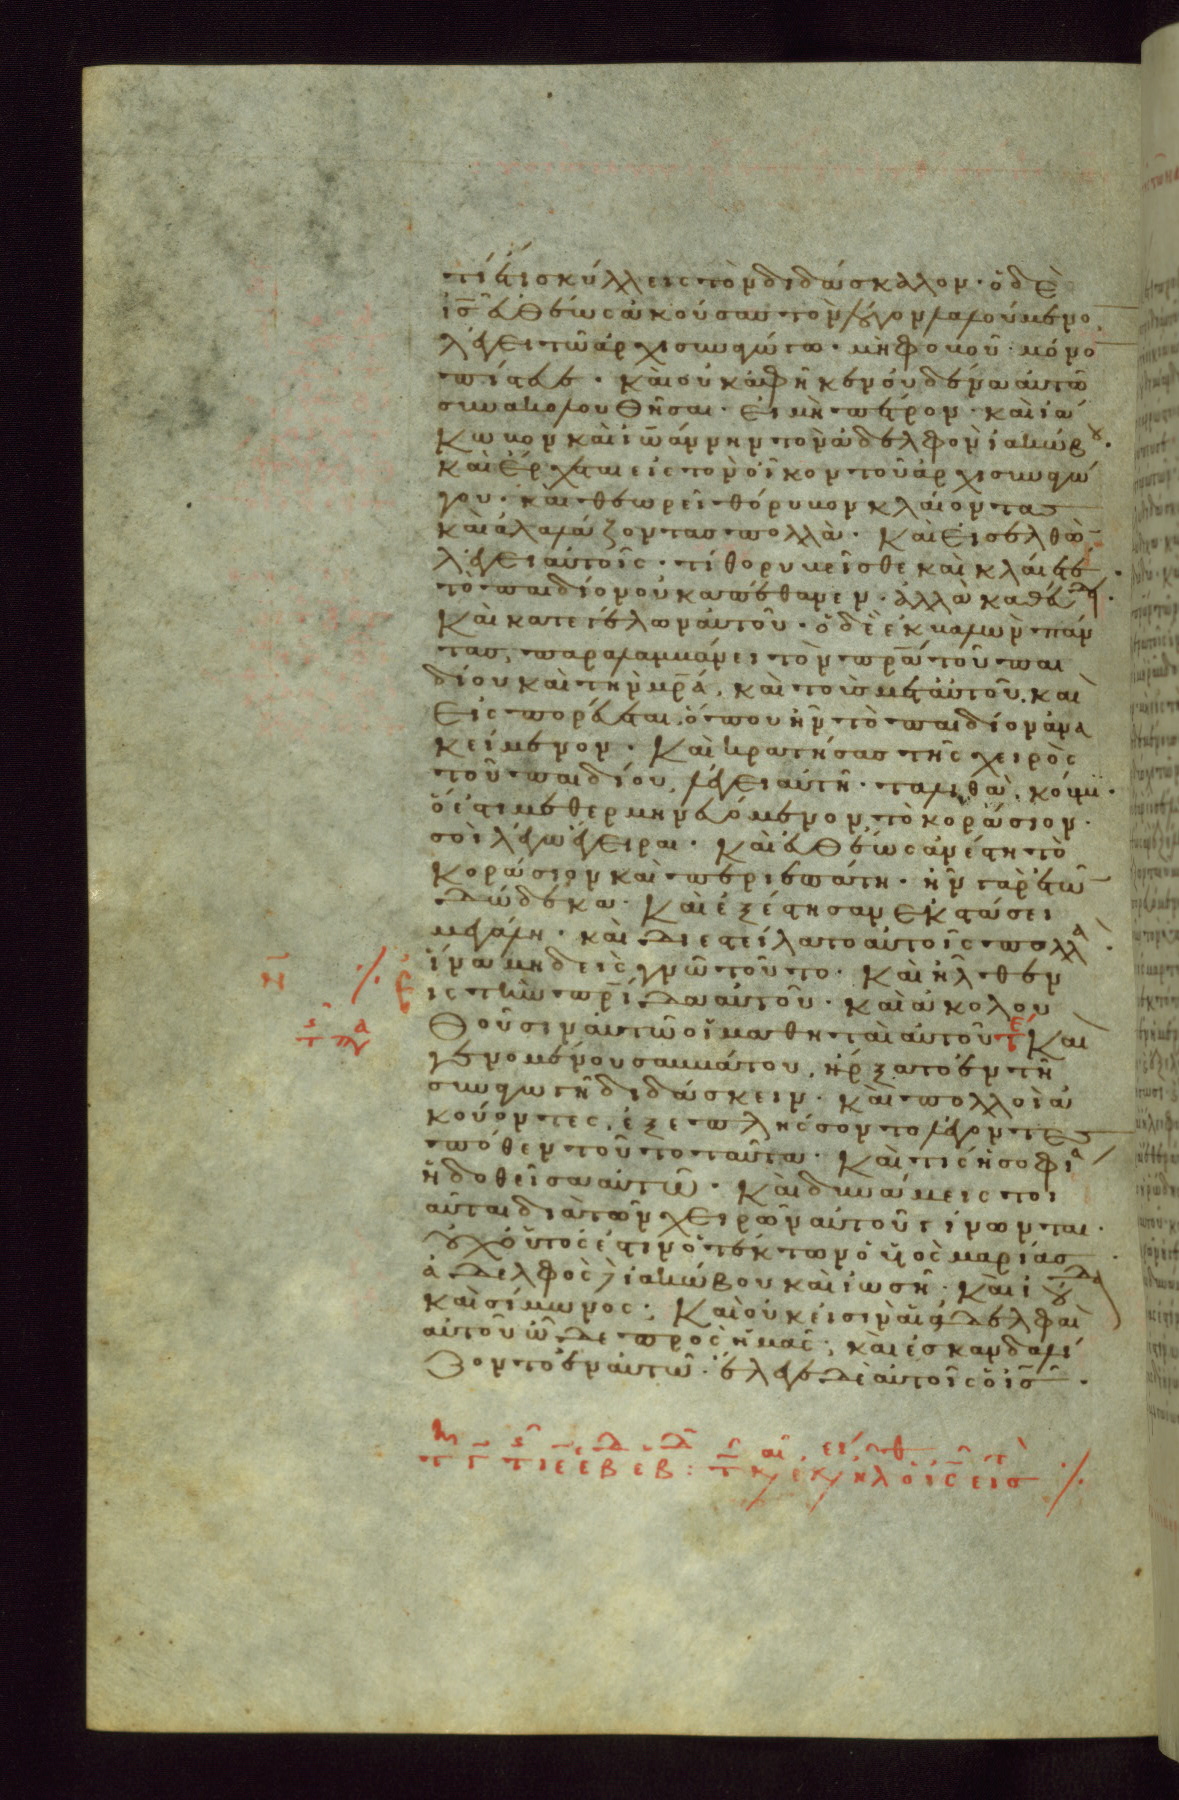 τί ἔτι σκύλλεις τὸν διδάσκαλον · ὁ δὲ
ι̅ς̅ εὐθέως ἀκούσας τὸν λόγον λαλούμενο
λέγει τῶ ἀρχισυναγώγω · μὴ φοβοῦ · μόνο
πίστευε · καὶ οὐκ ἀφῆκεν οὐδένα αὐτῶ
συνακολουθῆσαι · εἰ μὴ πέτρον · καὶ ἰά
κωβον καὶ ἰωάννην τὸν ἀδελφὸν ἰακώβου ·
καὶ ἔρχεται εἰς τὸν οἶκον τοῦ ἀρχισυναγώ
γου · καὶ θεωρεῖ θόρυβον κλαίοντας
καὶ ἀλαλάζοντας πολλὰ · καὶ εἰσελθὼ
λέγει αὐτοῖς · τί θορυβεῖσθε καὶ κλαίετε ·
τὸ παιδίον οὐκ ἀπέθανεν · ἀλλὰ καθεύδει ·
καὶ κατεγέλων αὐτοῦ · ὁ δὲ ἐκβαλὼν πάν
τας, παραλαμβάνει τὸν π̅ρ̅α̅ τοῦ παι
δίου καὶ τὴν μ̅ρ̅α̅, καὶ τοὺς μετ αὐτοῦ. καὶ
εἰσπορεύεται ὅπου ἦν τὸ παιδίον ἀνα
κείμενον · καὶ κρατήσας τῆς χειρὸς
τοῦ παιδίου, λέγει αὐτῆ · ταλιθὰ, κούμι ·
ὅ ἐστι μεθερμηνευόμενον, τὸ κοράσιον ·
σοὶ λέγω ἔγειραι · καὶ εὐθέως ἀνέστη τὸ
κοράσιον καὶ περιεπάτη · ἦν γὰρ ἐτῶ
δώδεκα · καὶ ἐξέστησαν ἐκστάσει
μεγάλη · καὶ διεστείλατο αὐτοῖς πολλὰ ·
ἵνα μηδεὶς γνῶ τοῦτο · καὶ ἦλθεν
ις τὴν π̅ρ̅ί̅δα αὐτοῦ · καὶ ἀκολου
θοῦσιν αὐτῶ οἱ μαθηταὶ αὐτοῦ καὶ
γενομένου σαββάτου, ἤρξατο ἐν τῆ
συναγωγῆ διδάσκειν · καὶ πολλοὶ ἀ
κούοντες, ἐξεπλήσσοντο λέγοντες
πόθεν τούτο ταῦτα · καὶ τίς ἡ σοφία
ἡ δοθεῖσα αὐτῶ · καὶ δυνάμεις τοι
αῦται διὰ τῶν χειρῶν αὐτοῦ γίνωνται ·
οὐχ οὗτός ἐστιν ὁ τέκτων ὁ υἱὸς μαρίας
ἀδελφὸς ἰακώβου καὶ ἰωσῆ · καὶ ἰούδα
καὶ σίμωνος · καὶ οὐκ εἰσὶν αἱ ἀδελφαὶ
αὐτοῦ ὧδε πρὸς ἡμᾶς; καὶ ἐσκανδαλί
ζοντο ἐν αὐτῶ · ἔλεγε δὲ αὐτοῖς ὁ ι̅ς̅ ·